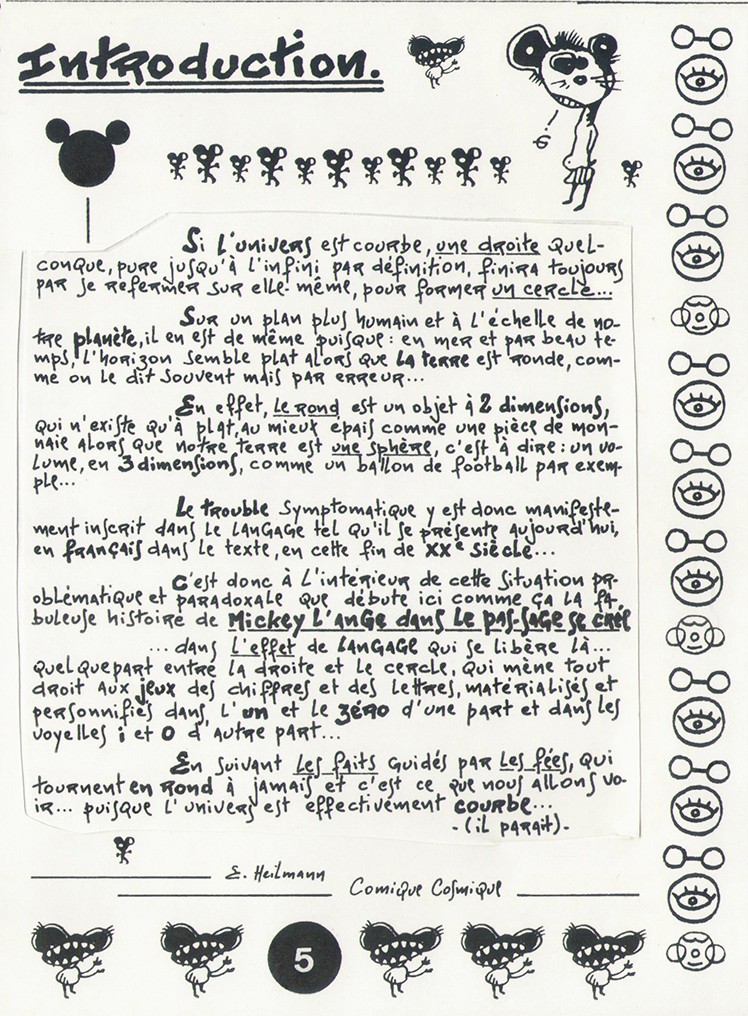 Introduction.
Si l'univers est courbe, une droite quel-
conque, pure jusqu'à l'infini par définition, finira toujours
par se refermer sur elle-même, pour former un cercle...
Sur un plan plus humain et à l'échelle de no-
tre planète, il en est de même puisque: en mer et par beau te-
mps, l'horizon semble plat alors que la terre est ronde, com-
me on le dit souvent mais par erreur...
En effet, le rond est un objet à 2 dimensions,
qui n'existe qu'à plat, au mieux épais comme une pièce de mon-
naie alors que notre terre est une sphère, c'est à dire: un vo-
lume, en 3 dimensions, comme un ballon de football par exem-
ple...
Le trouble symptomatique y est donc manifeste-
ment inscrit dans le langage tel qu'il se présente aujourd'hui,
en français dans le texte, en cette fin de XXe siècle...
C'est donc à l'intérieur de cette situation pr-
oblématique et paradoxale que débute ici comme ça la fa-
buleuse histoire de Mickey l'ange dans le pas-sage se créé
... dans l'effet de langage qui se libère là...
quelque part entre la droite et le cercle, qui mène tout
droit aux jeux des chiffres et des lettres, matérialisés et
personnifiés dans, l'un et le zéro d'une part et dans les
voyelles i et o d'autre part...
En suivant les faits guidés par les fées, qui
tournent en rond à jamais et c'est ce que nous allons vo-
ir... puisque l'univers est effectivement courbe...
-(il parait)-
E. Heilmann
Comique Cosmique
5